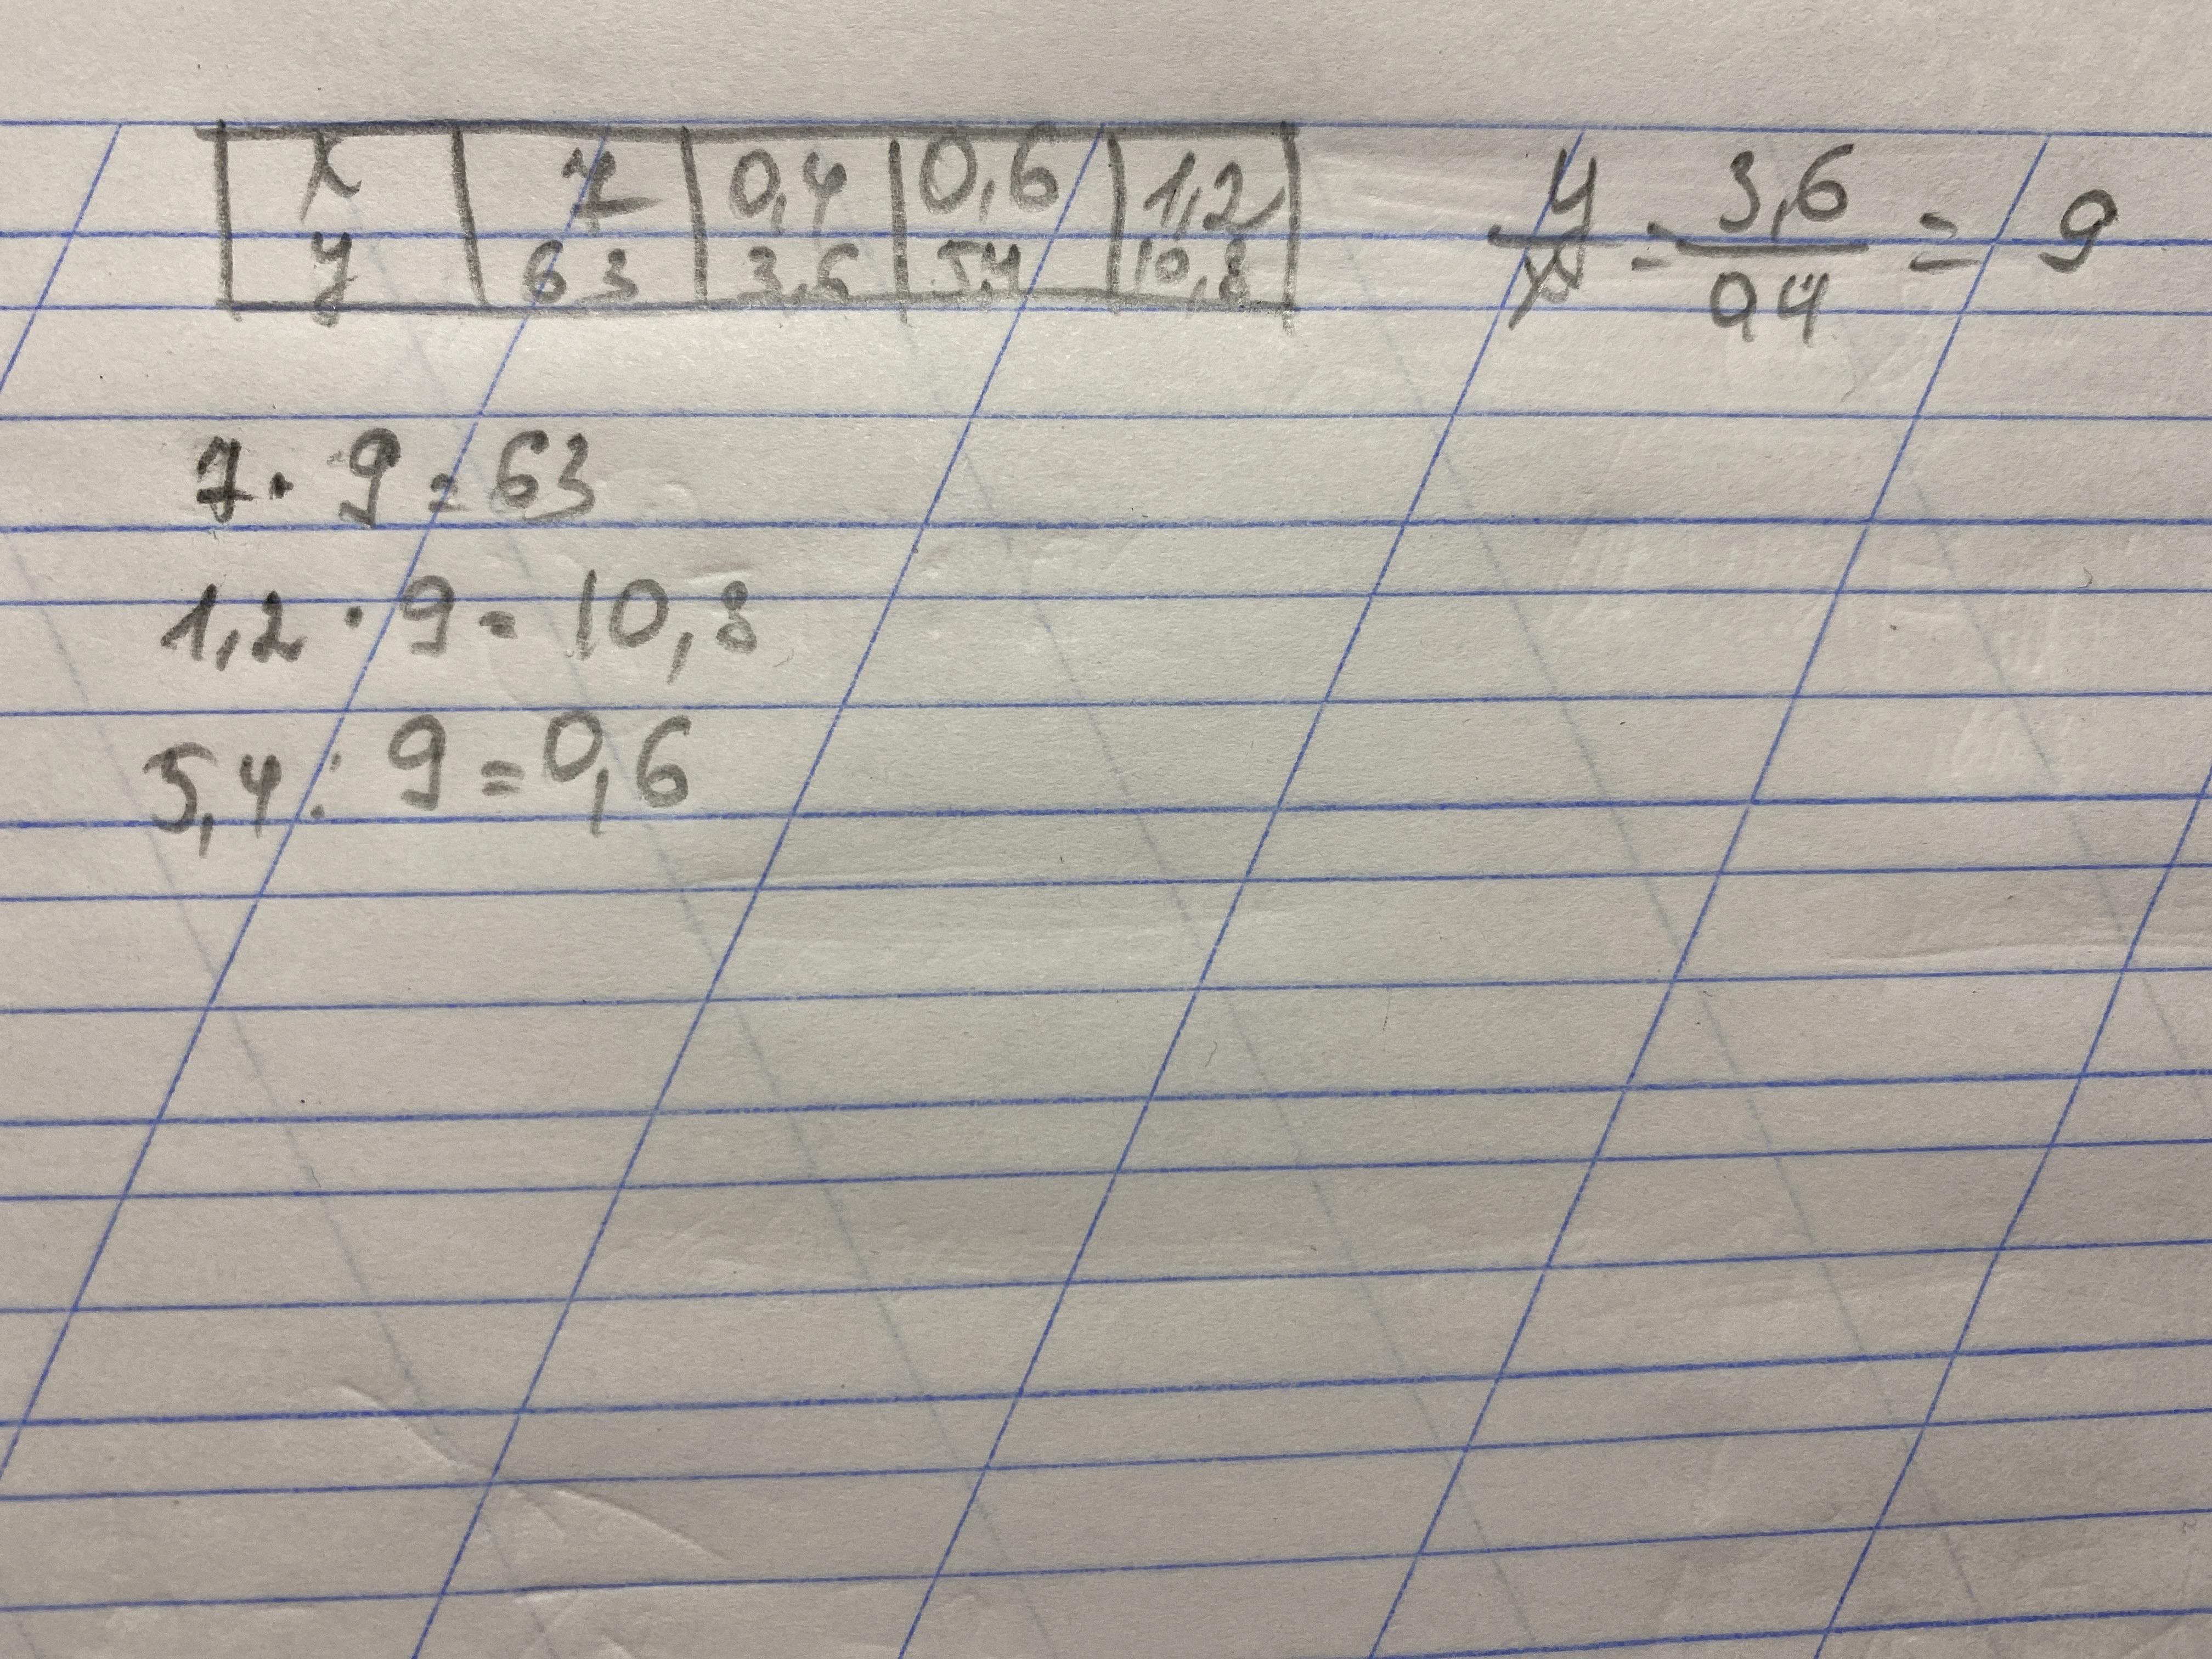 x 7 0,4 0,6 1,2
y 63 3,6 5,4 10,8
y/x = 3,6/0,4 = 9
7 · 9 = 63
1,2 · 9 = 10,8
5,4 : 9 = 0,6